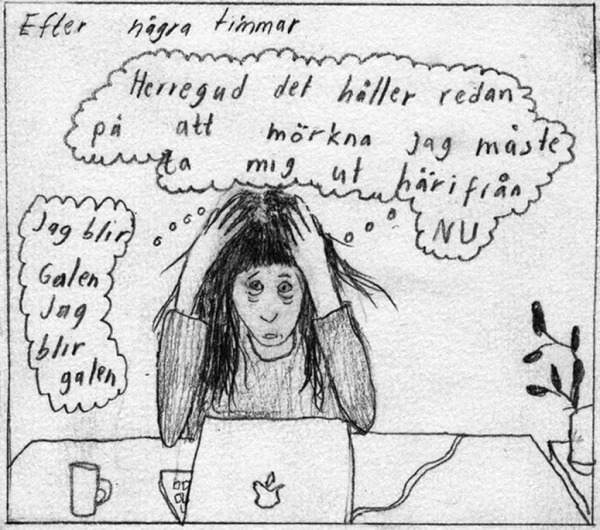 Efter några timmar
Herregud det håller redan
på att mörkna jag måste
ta mig ut härifrån
NU
Jag blir
Galen
Jag
blir
galen